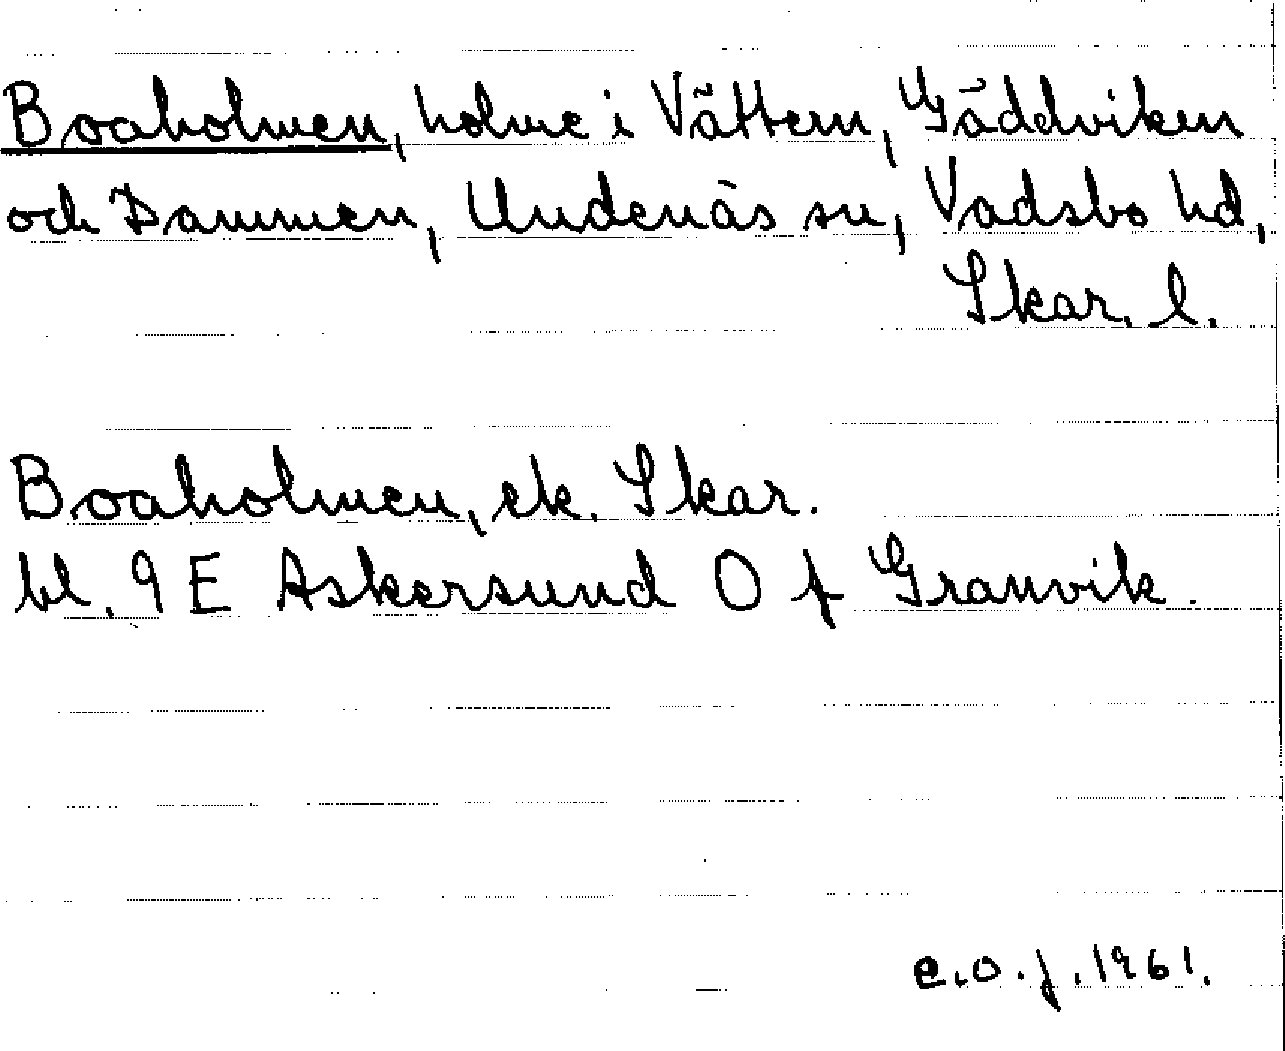 Boaholmen, holme i Vättern, Gäddviken
och Dammen, Undenäs sn, Vadsbo hd,
Skar. l.
Boaholmen, ek. Skar.
bl. 9 E Askersund O f Granvik.
C.O.J. 1961.